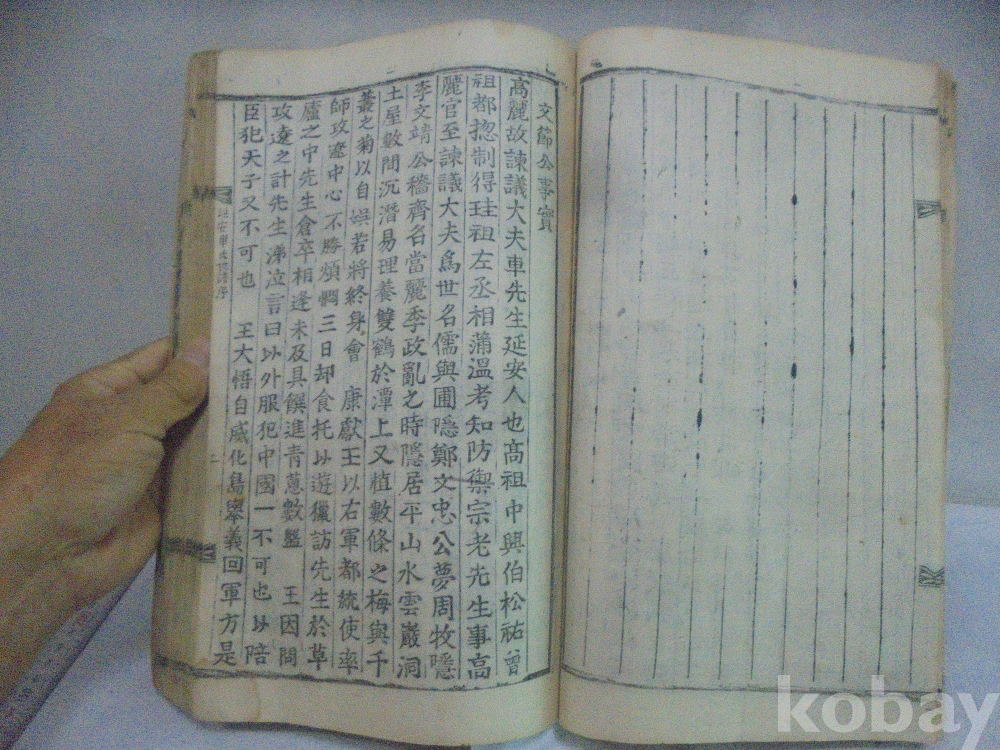 文節公事實
高麗故諫議大夫車先生延安人也高祖中興伯松祐曾
祖都摠制得珪祖左丞相蒲溫考知防禦宗老先生事高
麗官至諫議大夫爲世名儒與圃隱鄭文忠公夢周牧隱
李文靖公穡齊名當麗季政亂之時隱居平山水雲巖洞
土屋數間沉潛易理養雙鶴於潭上又植數條之梅與千
叢之菊以自娛若將終身會 康獻王以右軍都統使率
師攻遼中心不勝煩惆三日却食托以遊獵訪先生於草
廬之中先生倉卒相逢未及具饌進靑蔥數盤 王因問
攻遼之計先生涕泣言曰以外服犯中國一不可也以陪
臣犯天子又不可也 王大悟自威化島擧義回軍方是
二
kobay